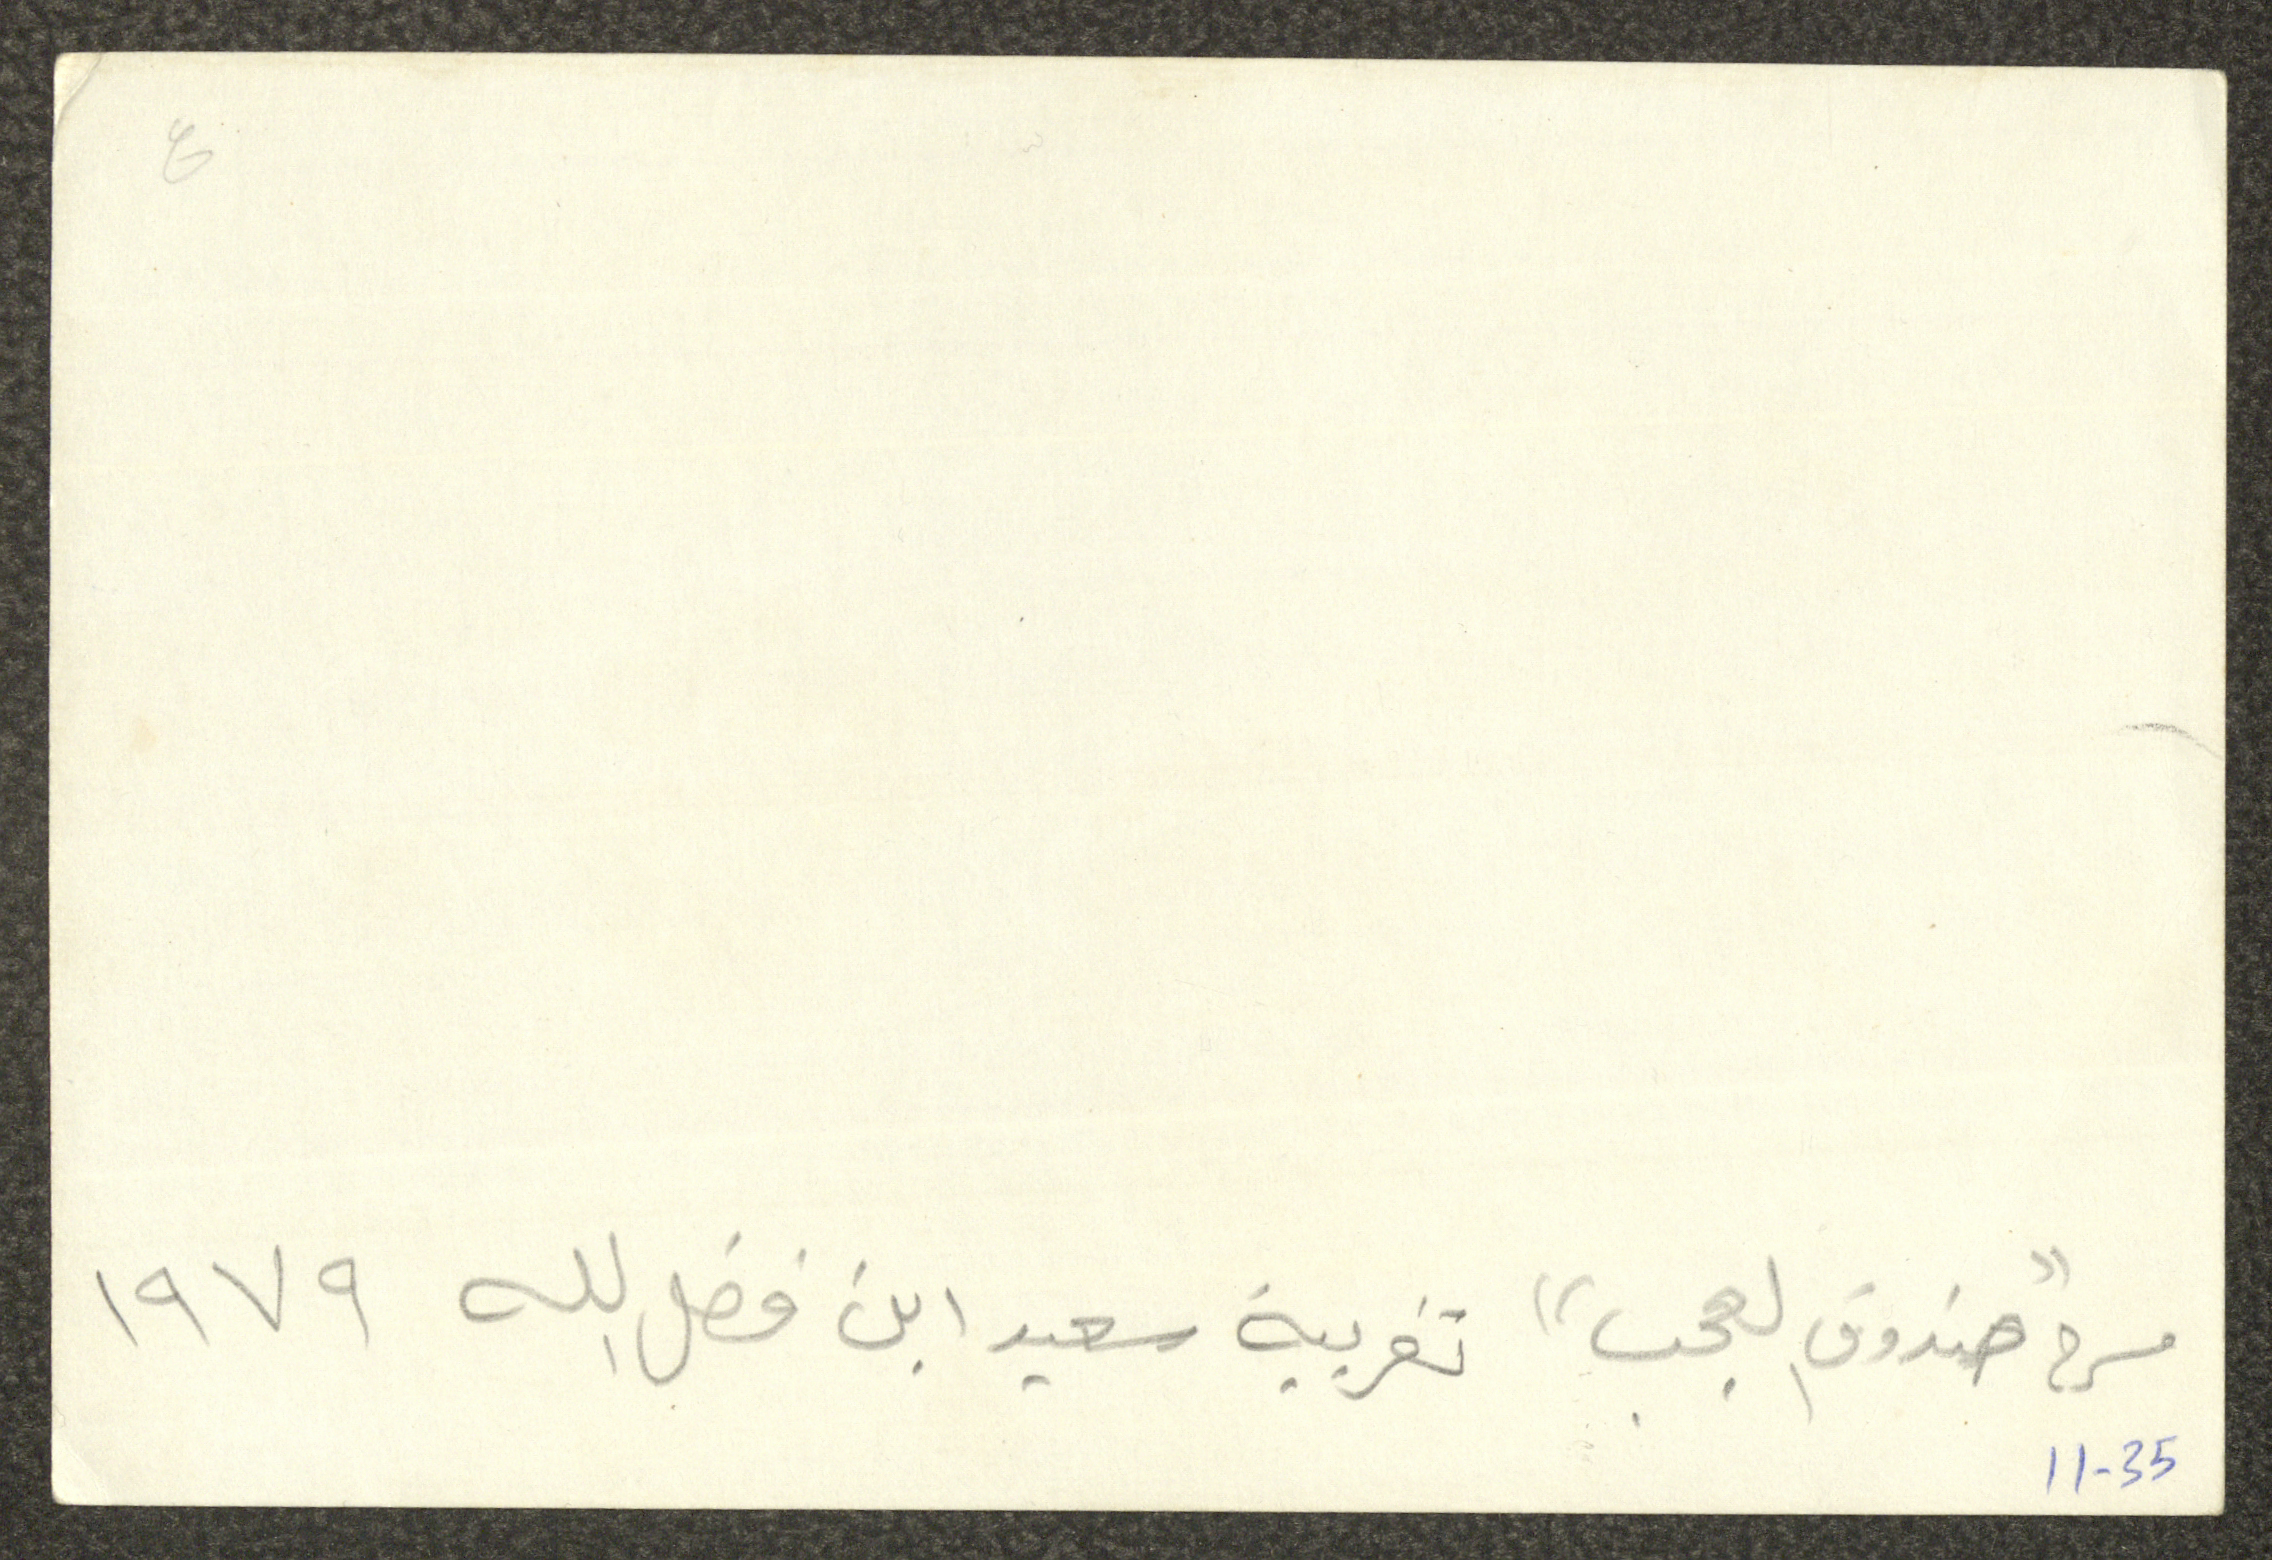 ٤
مسرح "صندوق العجب" تغريبة سعيد ابن فضل الله ١٩٧٩
11-35